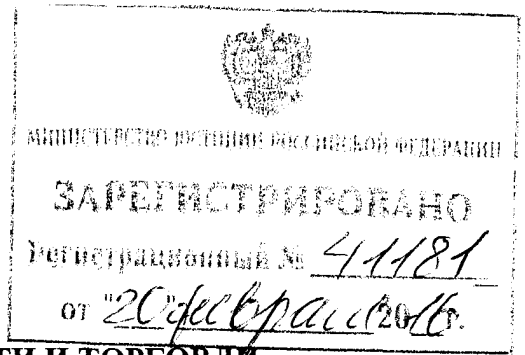 МИНИСТЕРСТВО ЮСТИЦИИ РОССИЙСКОЙ ФЕДЕРАЦИИ
ЗАРЕГИСТРИРОВАНО
Регистрационный № 41181
от "20" февраля 2016г.
И ТОРГОВЛИ